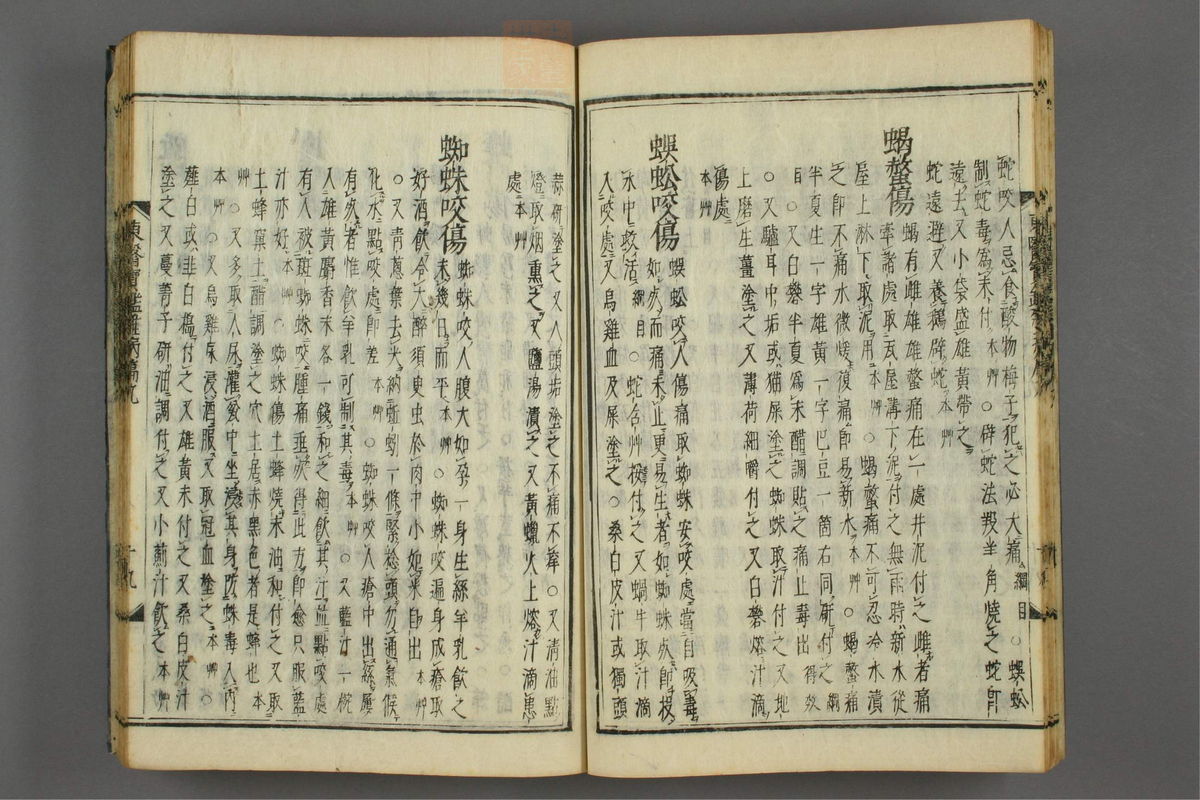 蛇咬人忌食酸物梅子犯之必大痛綱目○蜈蚣
制蛇毒爲末付本艸○辟蛇法羖羊角燒之蛇卽
遠去又小袋盛雄黃帶之
蛇遠避又養鵝辟蛇本艸
蝎螫傷
蝎有雌雄雄螫痛在一處井泥付之雌者痛
牽諸處取瓦屋溝下泥付之無雨時新水從
屋上淋下取泥用本艸○蝎螫痛不可忍冷水漬
之卽不痛水微煖復痛卽易新水本艸○蝎螫痛
半夏生一字雄黃一字巴豆一箇右同研付之綱
目○又白礬半夏爲末醋調貼之痛止毒出得效
○又驢耳中垢或猫尿塗之蜘蛛取汁付之又地
上磨生薑塗之又薄荷細嚼付之又白礬熔汁滴
傷處
本艸
蜈蚣咬傷
蜈蚣咬人傷痛取蜘蛛安咬處當自吸毒
如死而痛未止更易生者如蜘蛛死卽投
水中救活綱目○蛇含艸挼付之又蝸牛取汁滴
入咬處又烏雞血及屎塗之○桑白皮汁或獨頭
蒜研塗之又人頭垢塗之不痛不痒○又清油點
燈取烟熏之又鹽湯漬之又黃蠟火上熔汁滴患
處本艸
蜘蛛咬傷
蜘蛛咬人腹大如孕一身生絲羊乳飮之
未幾日而平本艸○蜘蛛咬遍身成瘡取
好酒飮令大醉須臾虫於肉中小如米自出本艸
○又靑葱葉去尖納蚯蚓一條緊捻頭勿通氣候
化水點咬處卽差本艸○蜘蛛咬人瘡中出絲屢
有死者惟飮羊乳可制其毒本艸○又藍汁一椀
入雄黃麝香末各一錢和之細飮其汁並點咬處
有人被斑蜘蛛咬腫痛垂死得此方卽愈只服藍
汁亦好本艸○蜘蛛傷土蜂燒末油和付之又取
土蜂窠土醋調塗之穴土居赤黑色者是蜂也本
艸○又多取人尿灌瓮中坐浸其身防蛛毒入內
本艸○又烏雞屎浸酒服又取冠血塗之本艸○
薤白或韭白搗付之又雄黃末付之又桑白皮汁
塗之又蔓菁子研油調付之又小薊汁飮之本艸
東醫寶鑑雜病篇九
十九